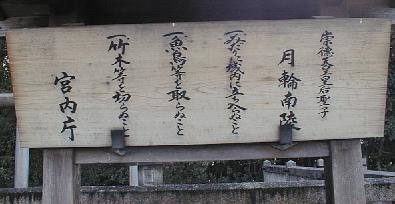 崇德天皇皇后聖子
月輪南陵
一、みだりに域内に立ち入らぬこと
一、魚鳥等を取らぬこと
一、竹木等を切らぬこと
宮内庁